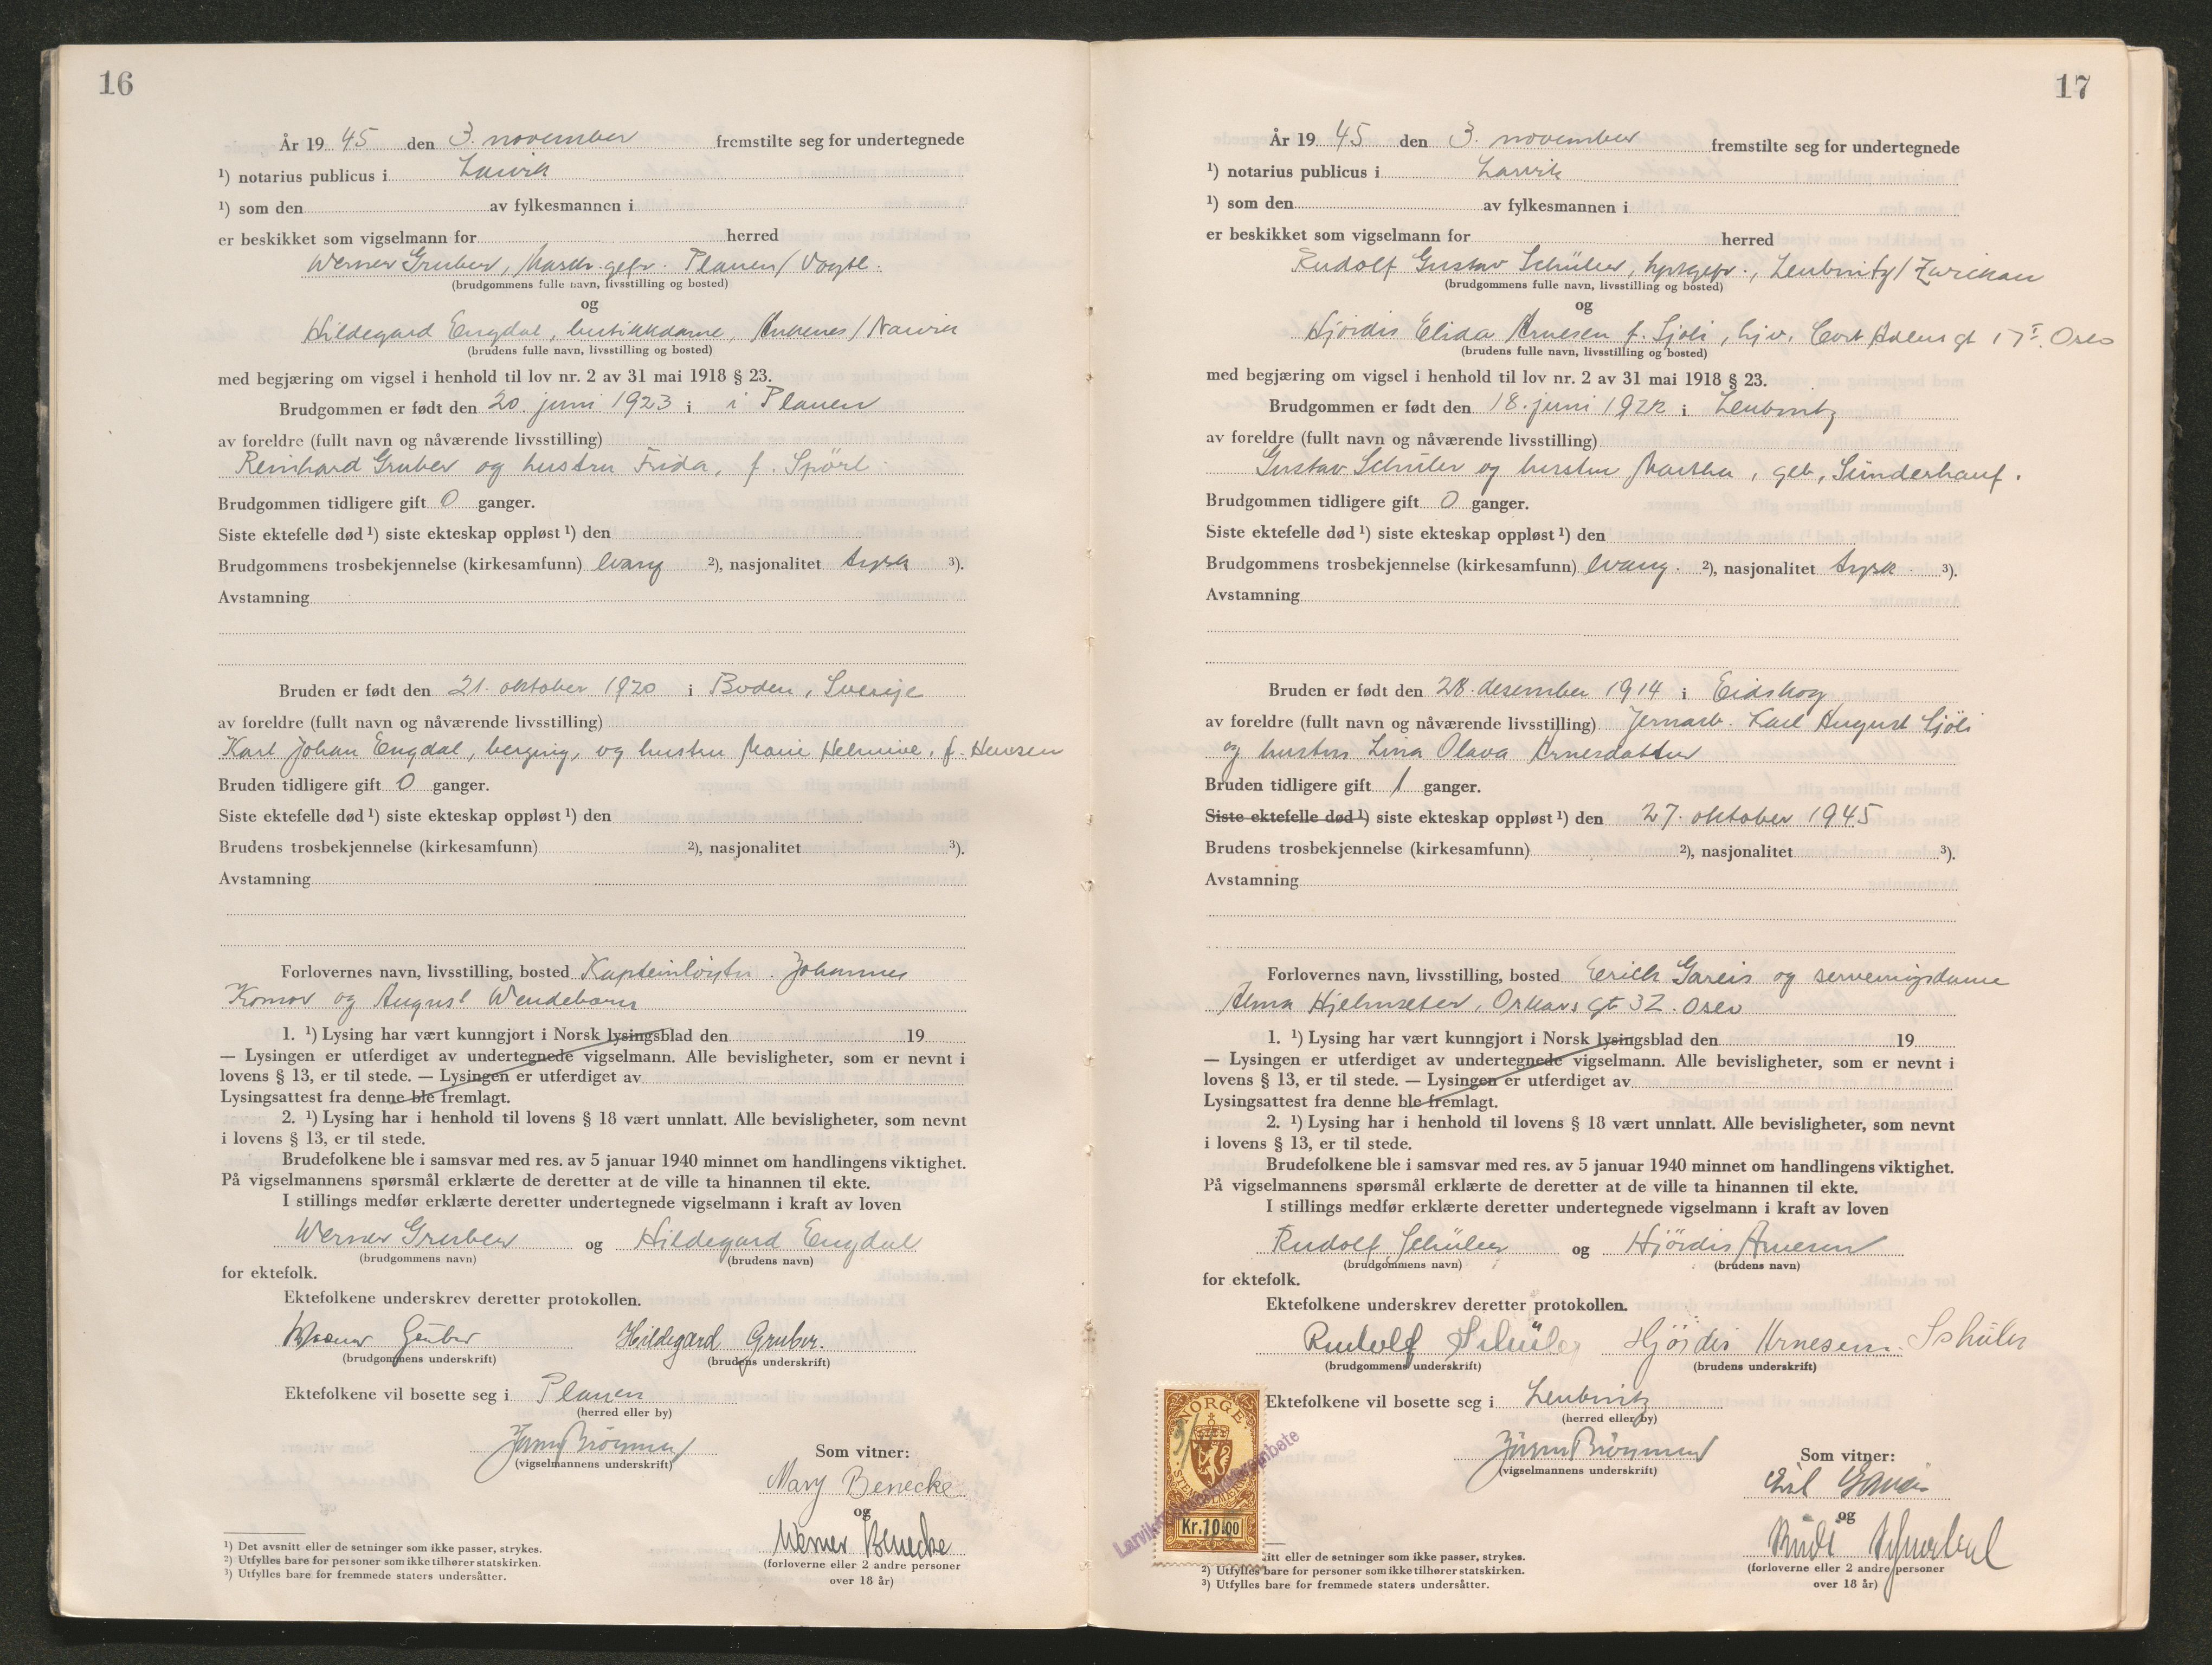 16
År 19 45 den 3. november fremstilte seg for undertegnede
¹) notarius publicus i Larvik
¹) som den av fylkesmannen i
er beskikket som vigselmann for herred
Werner Gruber, gefr. Plauen/Vogtl.
(brudgommens fulle navn, livsstilling og bosted)
og
Hildegard Engdal, butikkdame, Ankenes/Narvik
(brudens fulle navn, livsstilling og bosted)
med begjæring om vigsel i henhold til lov nr. 2 av 31 mai 1918 § 23.
Brudgommen er født den 20. juni 1923 i i Plauen
av foreldre (fullt navn og nåværende livsstilling)
Reinhard Gruber og hustru Frida, f. Spörl.
Brudgommen tidligere gift 0 ganger.
Siste ektefelle død ¹) siste ekteskap oppløst ¹) den
Brudgommens trosbekjennelse (kirkesamfunn) evang ²), nasjonalitet tysk ³).
Avstamning
Bruden er født den 21. oktober 1920 i Boden, Sverige
av foreldre (fullt navn og nåværende livsstilling)
Karl Johan Engdal, og hustru Marie Helmine, f. Hansen
Bruden tidligere gift 0 ganger.
Siste ektefelle død ¹) siste ekteskap oppløst ¹) den
Brudens trosbekjennelse (kirkesamfunn) ²), nasjonalitet ³).
Avstamning
Forlovernes navn, livsstilling, bosted Kapteinløytn. Johannes
og August Wendeborn
1. ¹) Lysing har vært kunngjort i Norsk lysingsblad den 19
— Lysingen er utferdiget av undertegnede vigselmann. Alle bevisligheter, som er nevnt i
lovens § 13, er til stede. — Lysingen er utferdiget av
Lysingsattest fra denne ble fremlagt.
2. ¹) Lysing har i henhold til lovens § 18 vært unnlatt. Alle bevisligheter, som nevnt
i lovens § 13, er til stede.
Brudefolkene ble i samsvar med res. av 5 januar 1940 minnet om handlingens viktighet.
På vigselmannens spørsmål erklærte de deretter at de ville ta hinannen til ekte.
I stillings medfør erklærte deretter undertegnede vigselmann i kraft av loven
Werner Gruber og Hildegard Engdal
(brudgommens navn) (brudens navn)
for ektefolk.
Ektefolkene underskrev deretter protokollen.
Werner Gruber Hildegard Gruber.
(brudgommens underskrift) (brudens underskrift)
Ektefolkene vil bosette seg i Plauen
(herred eller by)
(vigselmannens underskrift)
Som vitner:
Mary Benecke
og
Werner Benecke
(forloverne eller 2 andre personer
over 18 år)
¹) Det avsnitt eller de setninger som ikke passer, strykes.
²) Utfylles bare for personer som ikke tilhører statskirken.
³) Utfylles bare for fremmede staters undersåtter.
17
År 19 45 den 3. november fremstilte seg for undertegnede
¹) notarius publicus i Larvik
¹) som den av fylkesmannen i
er beskikket som vigselmann for herred
Rudolf Gustav Schüler, Leubnitz/Zwickau
(brudgommens fulle navn, livsstilling og bosted)
og
Hjördis Elida Arnesen f. Sjöli, hjv. Cort Adelers gt 17 I, Oslo
(brudens fulle navn, livsstilling og bosted)
med begjæring om vigsel i henhold til lov nr. 2 av 31 mai 1918 § 23.
Brudgommen er født den 18. juni 1922 i Leubnitz
av foreldre (fullt navn og nåværende livsstilling)
Gustav Schüler og hustru Martha, geb. Sünderhauf.
Brudgommen tidligere gift 0 ganger.
Siste ektefelle død ¹) siste ekteskap oppløst ¹) den
Brudgommens trosbekjennelse (kirkesamfunn) evang. ²), nasjonalitet tysk. ³).
Avstamning
Bruden er født den 28. desember 1914 i Eidskog
av foreldre (fullt navn og nåværende livsstilling) Jernarb. Karl August Sjöli
og hustru Lina Olava Arnesdatter
Bruden tidligere gift 1 ganger.
Siste ektefelle død ¹) siste ekteskap oppløst ¹) den 27. oktober 1945
Brudens trosbekjennelse (kirkesamfunn) ²), nasjonalitet ³).
Avstamning
Forlovernes navn, livsstilling, bosted Erich Gareis og serveringsdame
Alma Hjelmseter, Oskars gt 32. Oslo
1. ¹) Lysing har vært kunngjort i Norsk lysingsblad den 19
— Lysingen er utferdiget av undertegnede vigselmann. Alle bevisligheter, som er nevnt i
lovens § 13, er til stede. — Lysingen er utferdiget av
Lysingsattest fra denne ble fremlagt.
2. ¹) Lysing har i henhold til lovens § 18 vært unnlatt. Alle bevisligheter, som nevnt
i lovens § 13, er til stede.
Brudefolkene ble i samsvar med res. av 5 januar 1940 minnet om handlingens viktighet.
På vigselmannens spørsmål erklærte de deretter at de ville ta hinannen til ekte.
I stillings medfør erklærte deretter undertegnede vigselmann i kraft av loven
Rudolf Schüler og Hjördis Arnesen
(brudgommens navn) (brudens navn)
for ektefolk.
Ektefolkene underskrev deretter protokollen.
Rudolf Schüler Hjördis Arnesen. Schüler
(brudgommens underskrift) (brudens underskrift)
Ektefolkene vil bosette seg i Leubnitz
(herred eller by)
(vigselmannens underskrift)
Som vitner:
og
(forloverne eller 2 andre personer
over 18 år)
NORGE
Kr. 10.00
itt eller de setninger som ikke passer, strykes.
²) Utfylles bare for personer som ikke tilhører statskirken.
³) Utfylles bare for fremmede staters undersåtter.